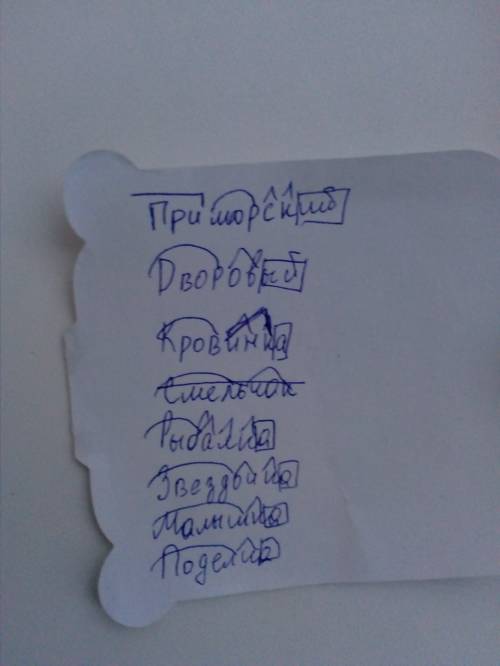 Приморский
Дворовый
Кровинка
Смельчак
Рыбалка
Звездвика
Малышка
Поделка